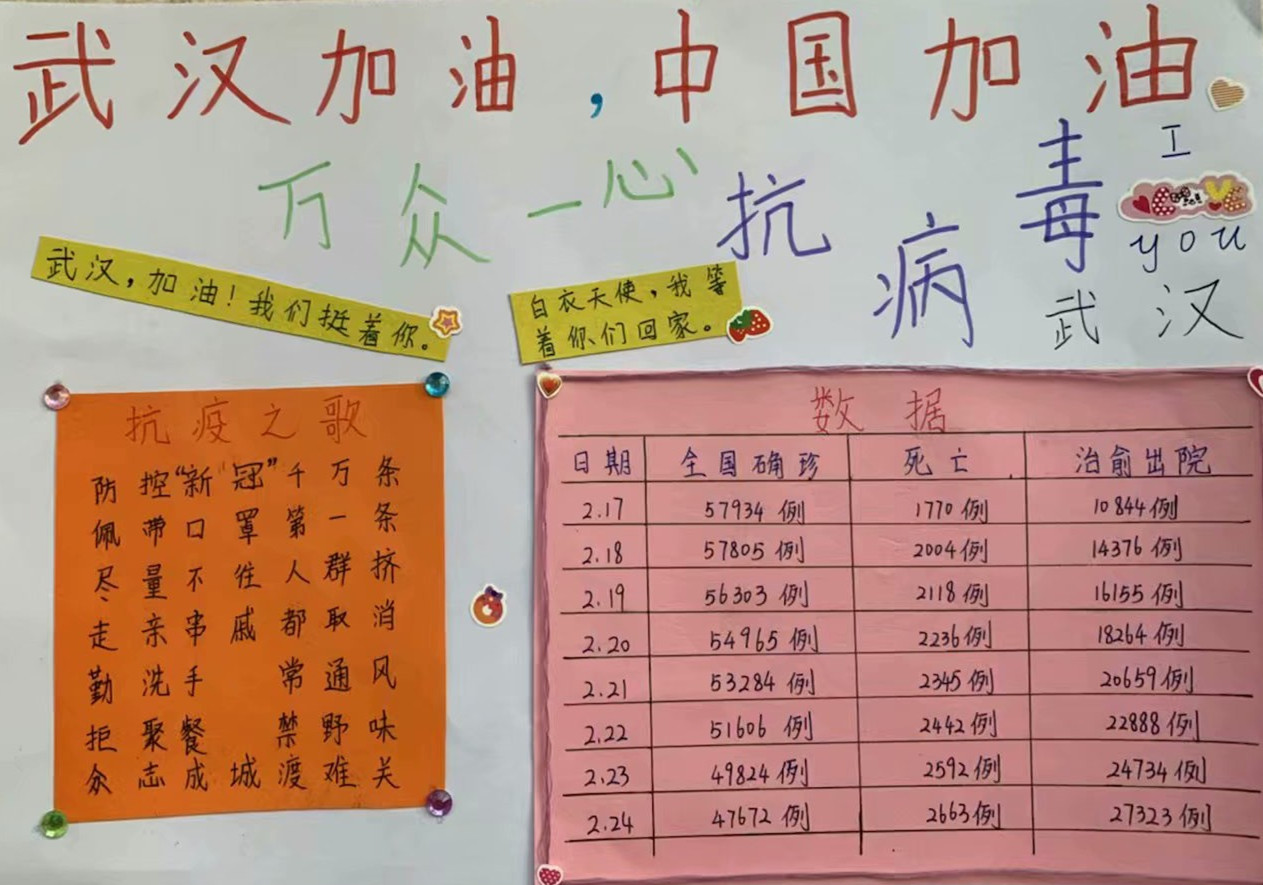 武汉加油，中国加油
万众一心抗病毒
I
you
武汉
武汉，加油！我们挺着你。
白衣天使，我等
着你们回家。
抗疫之歌
防控“新冠”千万条
佩带口罩第一条
尽量不往人群挤
走亲串戚都取消
勤洗手 常通风
拒聚餐 禁野味
众志成城渡难关
数据
日期 全国确珍 死亡 治俞出院
2.17 57934例 1770例 10844例
2.18 57805例 2004例 14376例
2.19 56303例 2118例 16155例
2.20 54965例 2236例 18264例
2.21 53284例 2345例 20659例
2.22 51606例 2442例 22888例
2.23 49824例 2592例 24734例
2.24 47672例 2663例 27323例